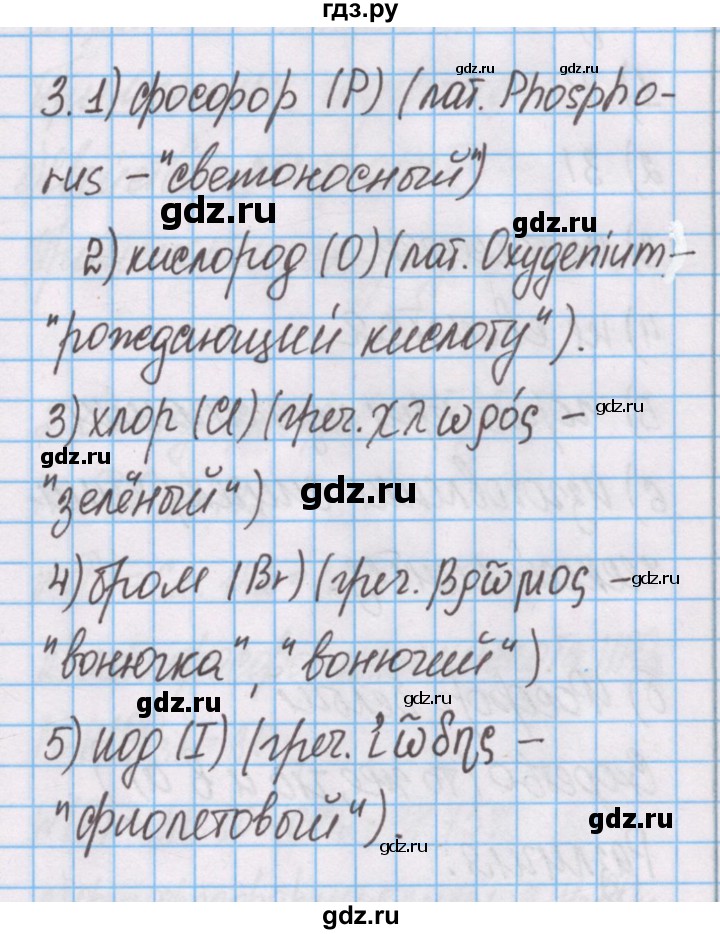 гдз.ру
gdz.ru gdz.ru
3. 1) фосфор (P) (лат. Phospho-
rus – "светоносный")
gdz.ru gdz.ru
2) кислород (O) (лат. Oxygenium –
"рождающий кислоту").
3) хлор (Cl) (греч. χλωρός –
gdz.ru
gdz.ru
"зелёный")
gdz.ru
4) бром (Br) (греч. βρῶμος –
gdz.ru
"вонючка", "вонючий")
gdz.ru gdz.ru
5) иод (I) (греч. ἰώδης –
"фиолетовый").
gdz.ru
gdz.ru
gdz.ru